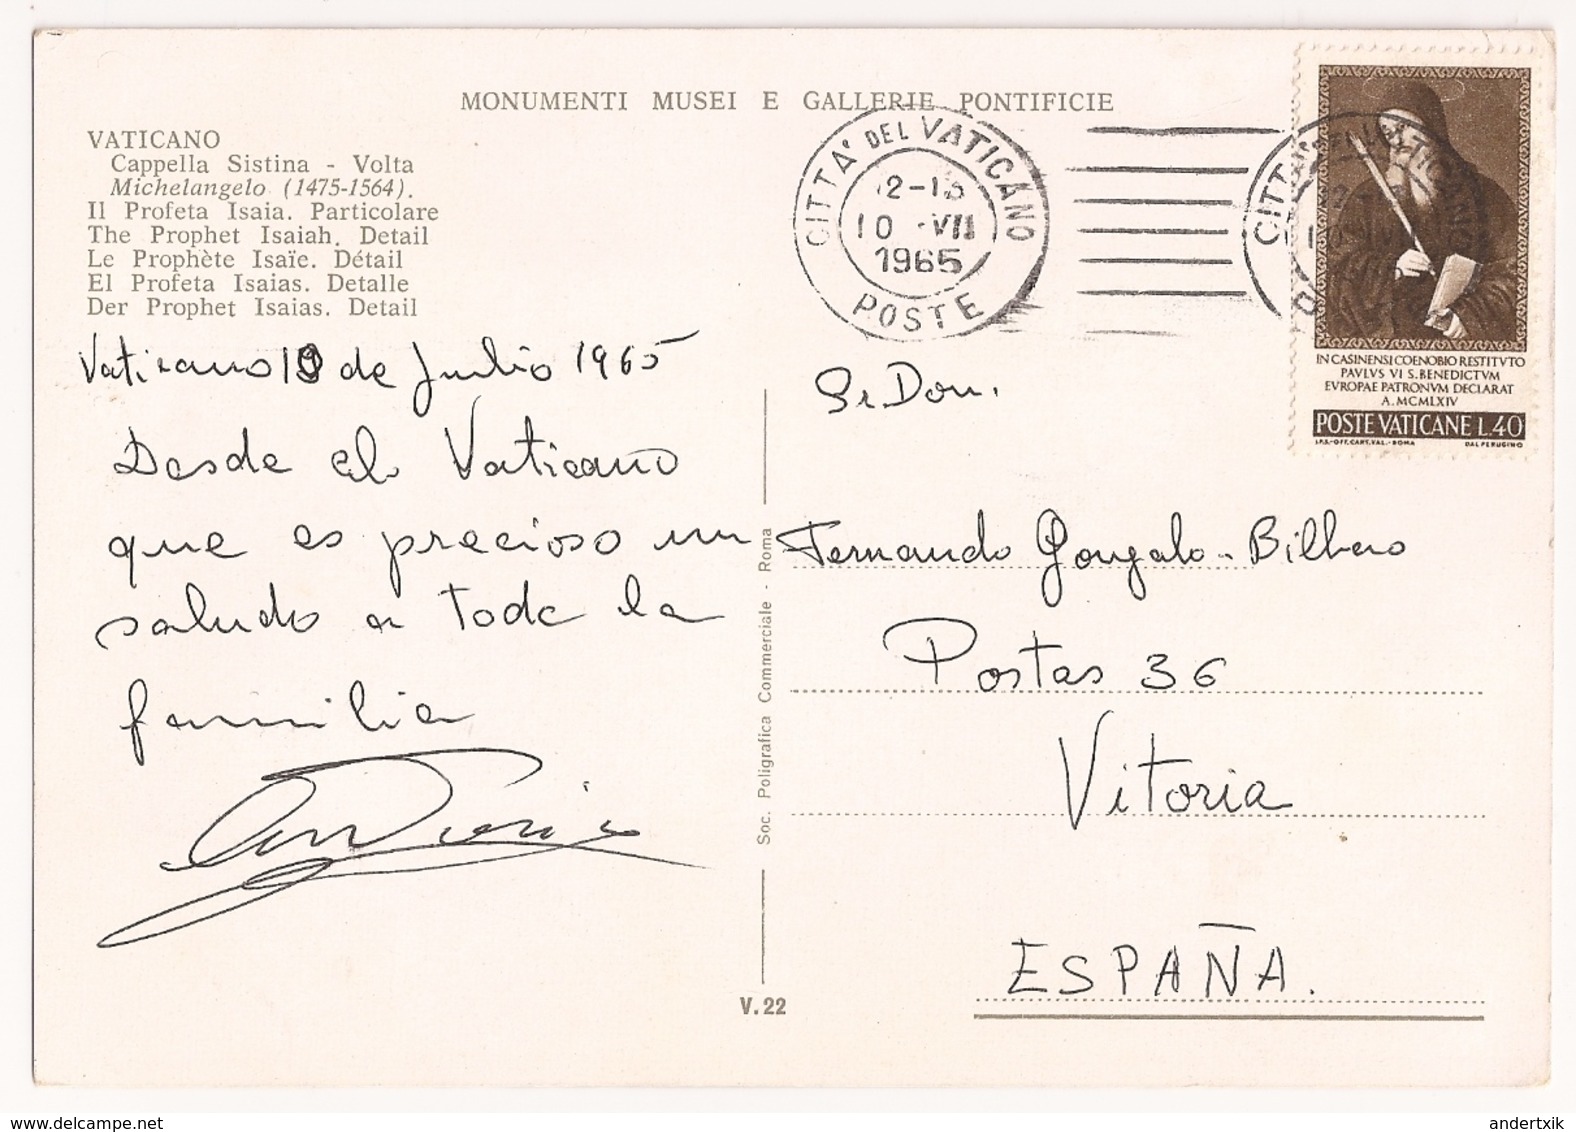 MONUMENTI MUSEI E GALLERIE PONTIFICIE
VATICANO
Cappella Sistina - Volta
Michelangelo (1475-1564).
Il Profeta Isaia. Particolare
The Prophet Isaiah. Detail
Le Prophète Isaïe. Détail
El Profeta Isaias. Detalle
Der Prophet Isaias. Detail
Vaticano de Julio 1965
Desde el Vaticano
que es precioso un
saludo a toda la
familia
CITTA' DEL VATICANO
10 VII
1965
POSTE
IN CASINENSI COENOBIO RESTITVTO
PAVLVS VI S. BENEDICTVM
EVROPAE PATRONVM DECLARAT
A. MCMLXIV
POSTE VATICANE L. 40
I.P.S.-OFF. CART. VAL.-ROMA DAL PERUGINO
Sr Don.
Fernando Gonzalo-Bilbao
Postas 36
Vitoria
ESPAÑA.
Soc. Poligrafica Commerciale - Roma
V. 22
andertxik